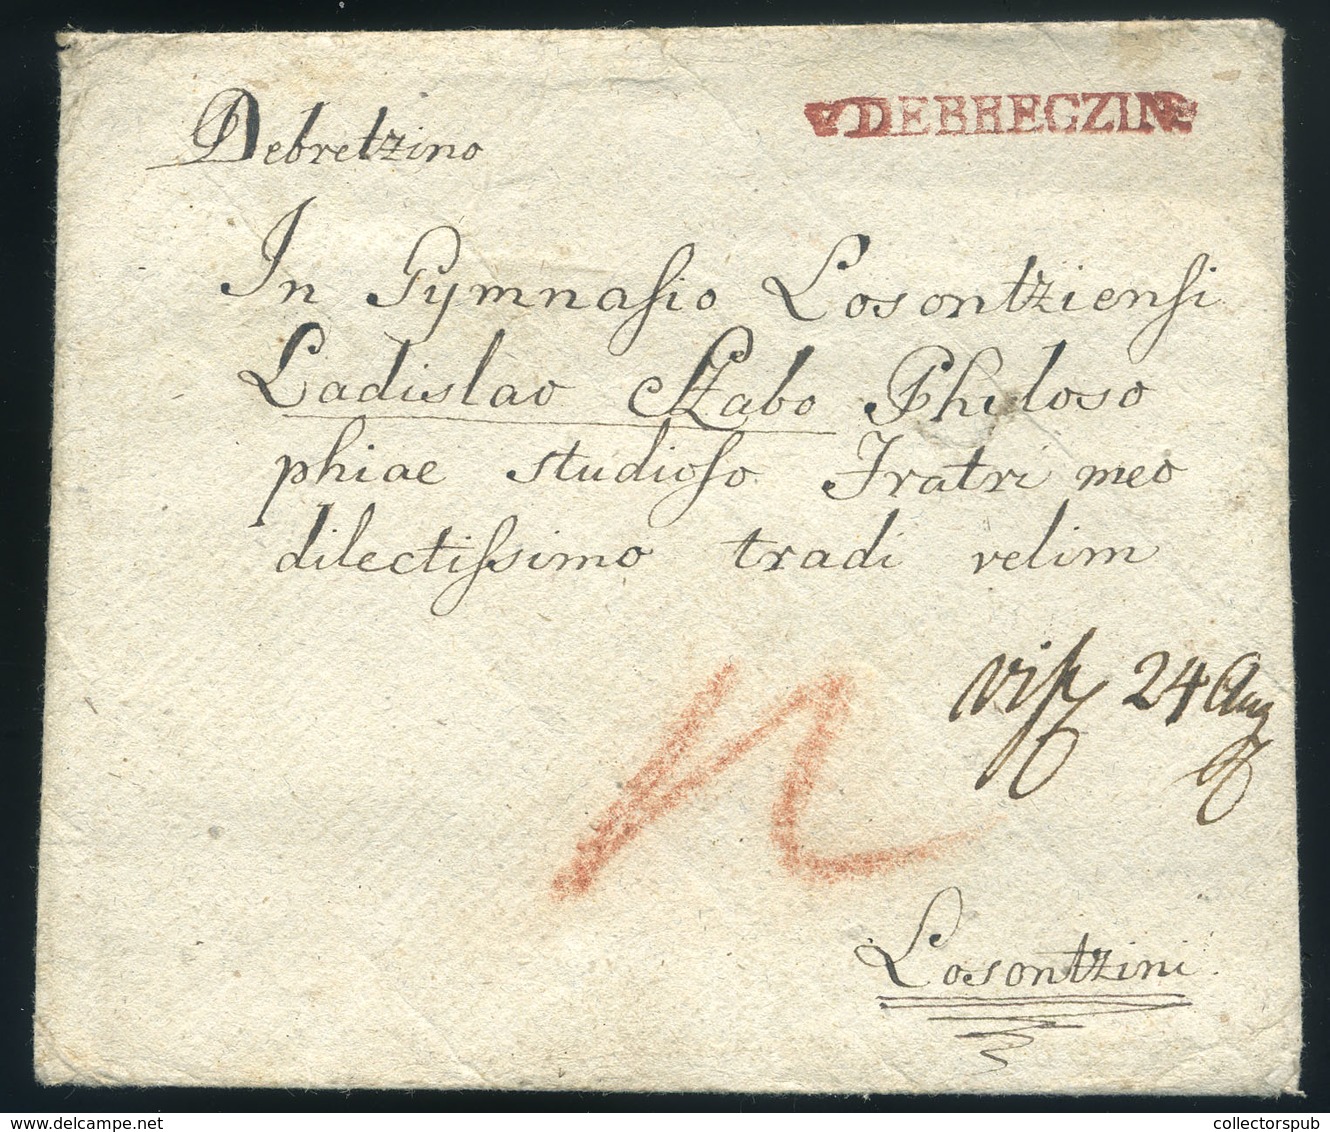 Debretzino
DEBRECZIN
In Gymnasio Losontziensi
Ladislao Szabo Philoso
phiae studioso Fratri meo
dilectissimo tradi velim
24 Aug
Losontzini
www.delcampe.net
collectorspub